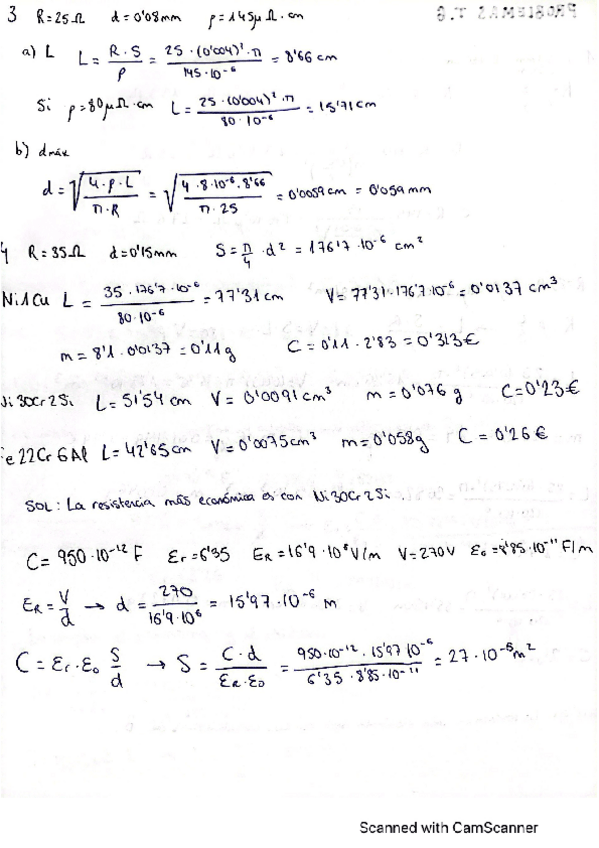 PROBLEMAS T.6
3 R=25Ω d=0'08mm ρ=145μΩ·cm
a) L L = R·S / ρ = 25·(0'004)²·π / 145·10⁻⁶ = 8'66 cm
Si ρ=80μΩ·cm L = 25·(0'004)²·π / 80·10⁻⁶ = 15'71 cm
b) dmáx
d = √(4·ρ·L / π·R) = √(4·8·10⁻⁶·8'66 / π·25) = 0'0059 cm = 0'059 mm
4 R=35Ω d=0'15mm S = π/4 · d² = 176'7·10⁻⁶ cm²
Ni1Cu L = 35·176'7·10⁻⁶ / 80·10⁻⁶ = 77'31 cm V = 77'31·176'7·10⁻⁶ = 0'0137 cm³
m = 8'1·0'0137 = 0'11 g C = 0'11·2'83 = 0'313 €
Ni30Cr2Si L = 51'54 cm V = 0'0091 cm³ m = 0'076 g C = 0'23 €
e22Cr6Al L = 42'65 cm V = 0'0075 cm³ m = 0'058 g C = 0'26 €
SOL: La resistencia más económica es con Ni30Cr2Si
C = 950·10⁻¹² F Er = 6'35 ER = 16'9·10⁶ V/m V = 270V E₀ = 8'85·10⁻¹¹ F/m
ER = V/d → d = 270 / 16'9·10⁶ = 15'97·10⁻⁶ m
C = Er·E₀ S/d → S = C·d / ER·E₀ = 950·10⁻¹²·15'97·10⁻⁶ / 6'35·8'85·10⁻¹¹ = 27·10⁻⁶ m²
Scanned with CamScanner